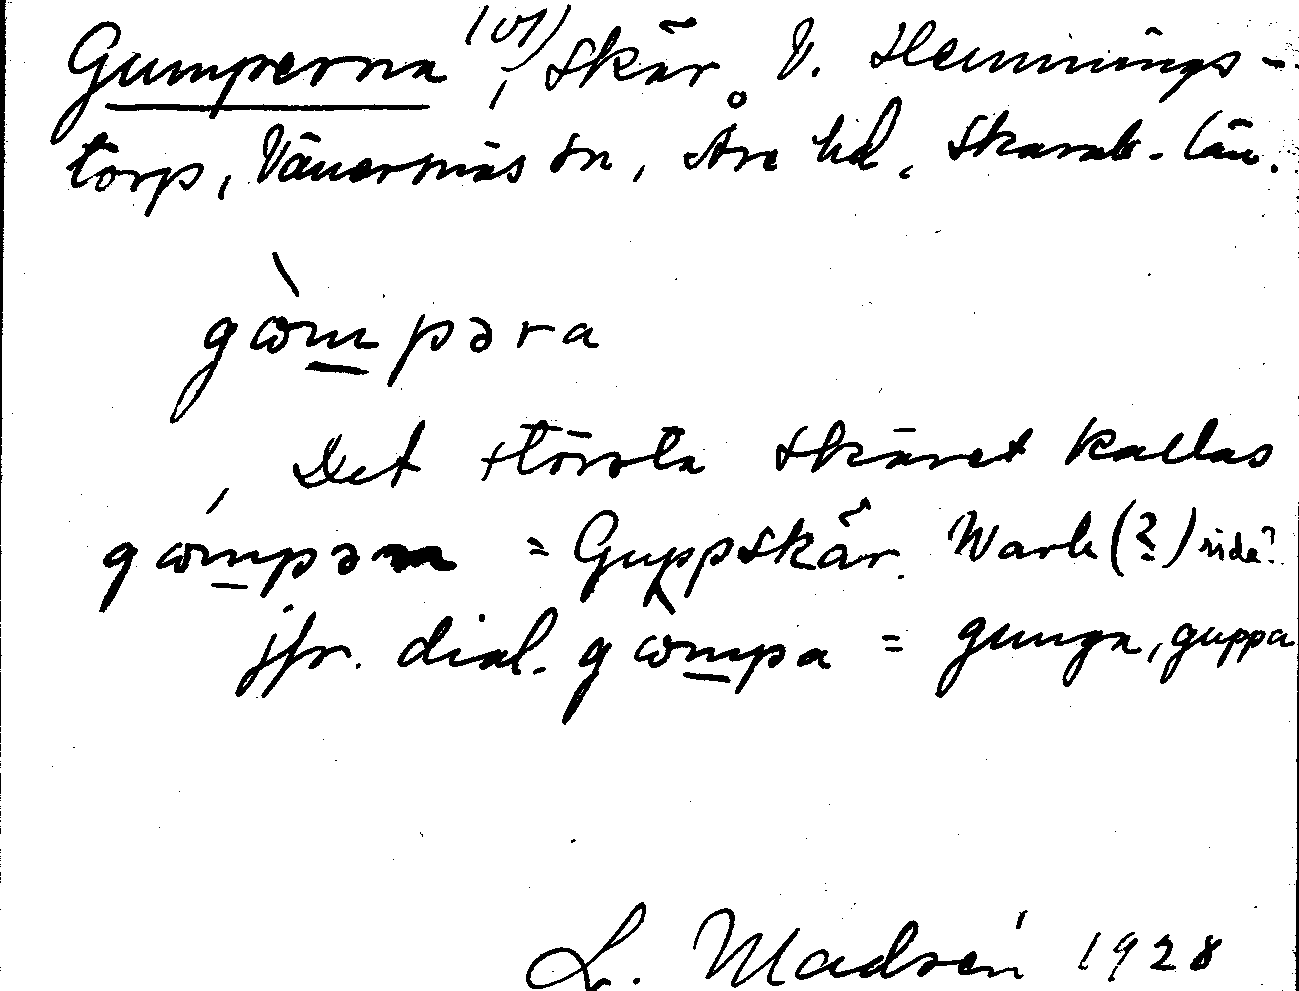 Gumperna, (or) skär V. Hemmings-
torp, Vänersnäs sn, Åse hd, Skarab. län.
gòmpəra
Det största skäret kallas
gómpəm = Guppskär.
jfr. dial. gòmpa = gunga, guppa
L. Madsén 1928